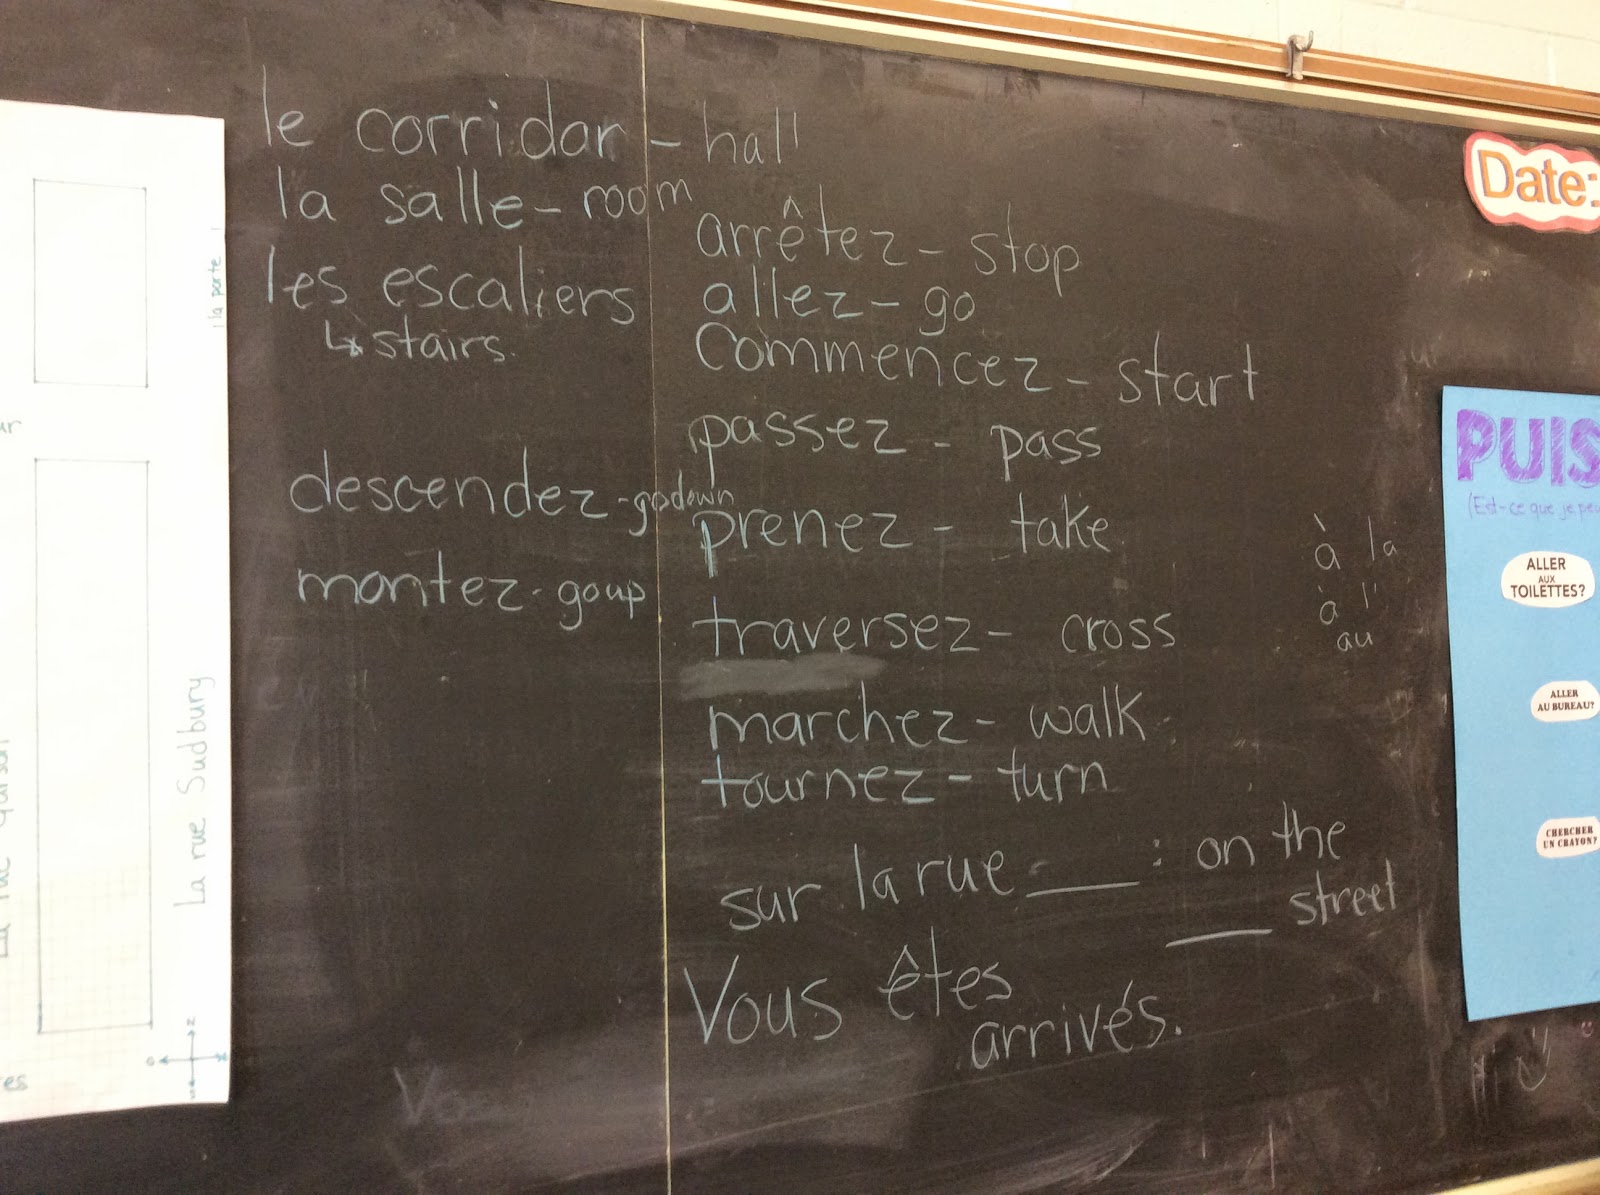 le corridor - hall
la salle - room
les escaliers
↳ stairs.
descendez - go down
montez - go up
arrêtez - stop
allez - go
commencez - start
passez - pass
prenez - take
traversez - cross
marchez - walk
tournez - turn
sur la rue ____ : on the
____ street
Vous êtes
arrivés.
à la
à l'
au
la porte
La rue Sudbury
Date:
PUIS
(Est-ce que je peu
ALLER
AUX
TOILETTES?
ALLER
AU BUREAU?
CHERCHER
UN CRAYON?
Hi